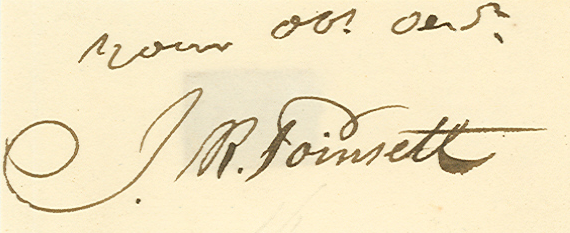 your obt. servt.
J. R. Poinsett